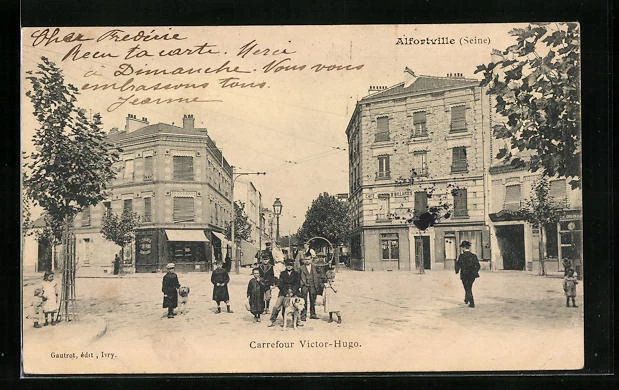 Cher Frédéric
Reçu ta carte. Merci
à Dimanche. Vous vous
embrassons tous.
Jeanne
Alfortville (Seine)
BILLARDS
Carrefour Victor-Hugo.
Gautrot, édit, Ivry.